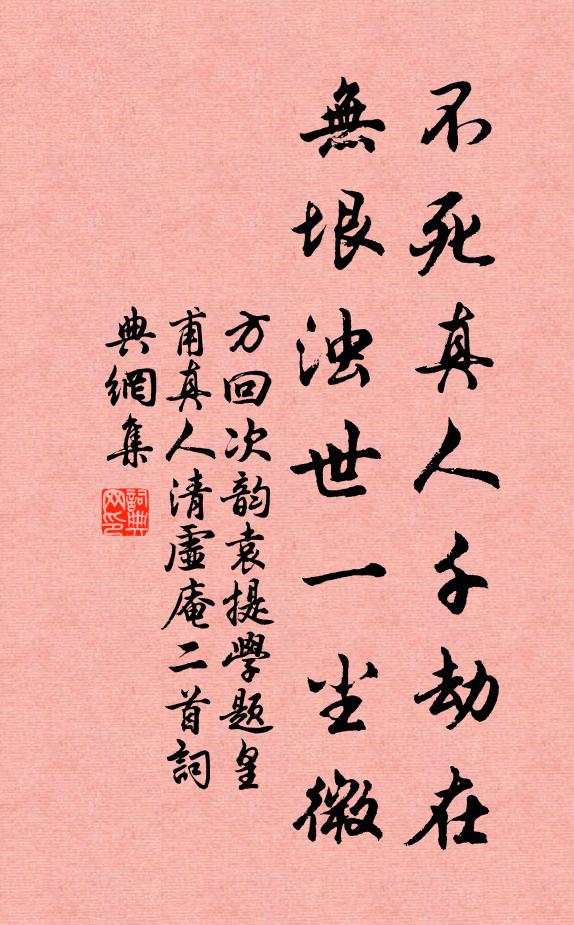 不死真人千劫在
無垠浊世一尘微
方回次韵袁提學題皇
甫真人清虛庵二首詞
典網集
詞典
网印